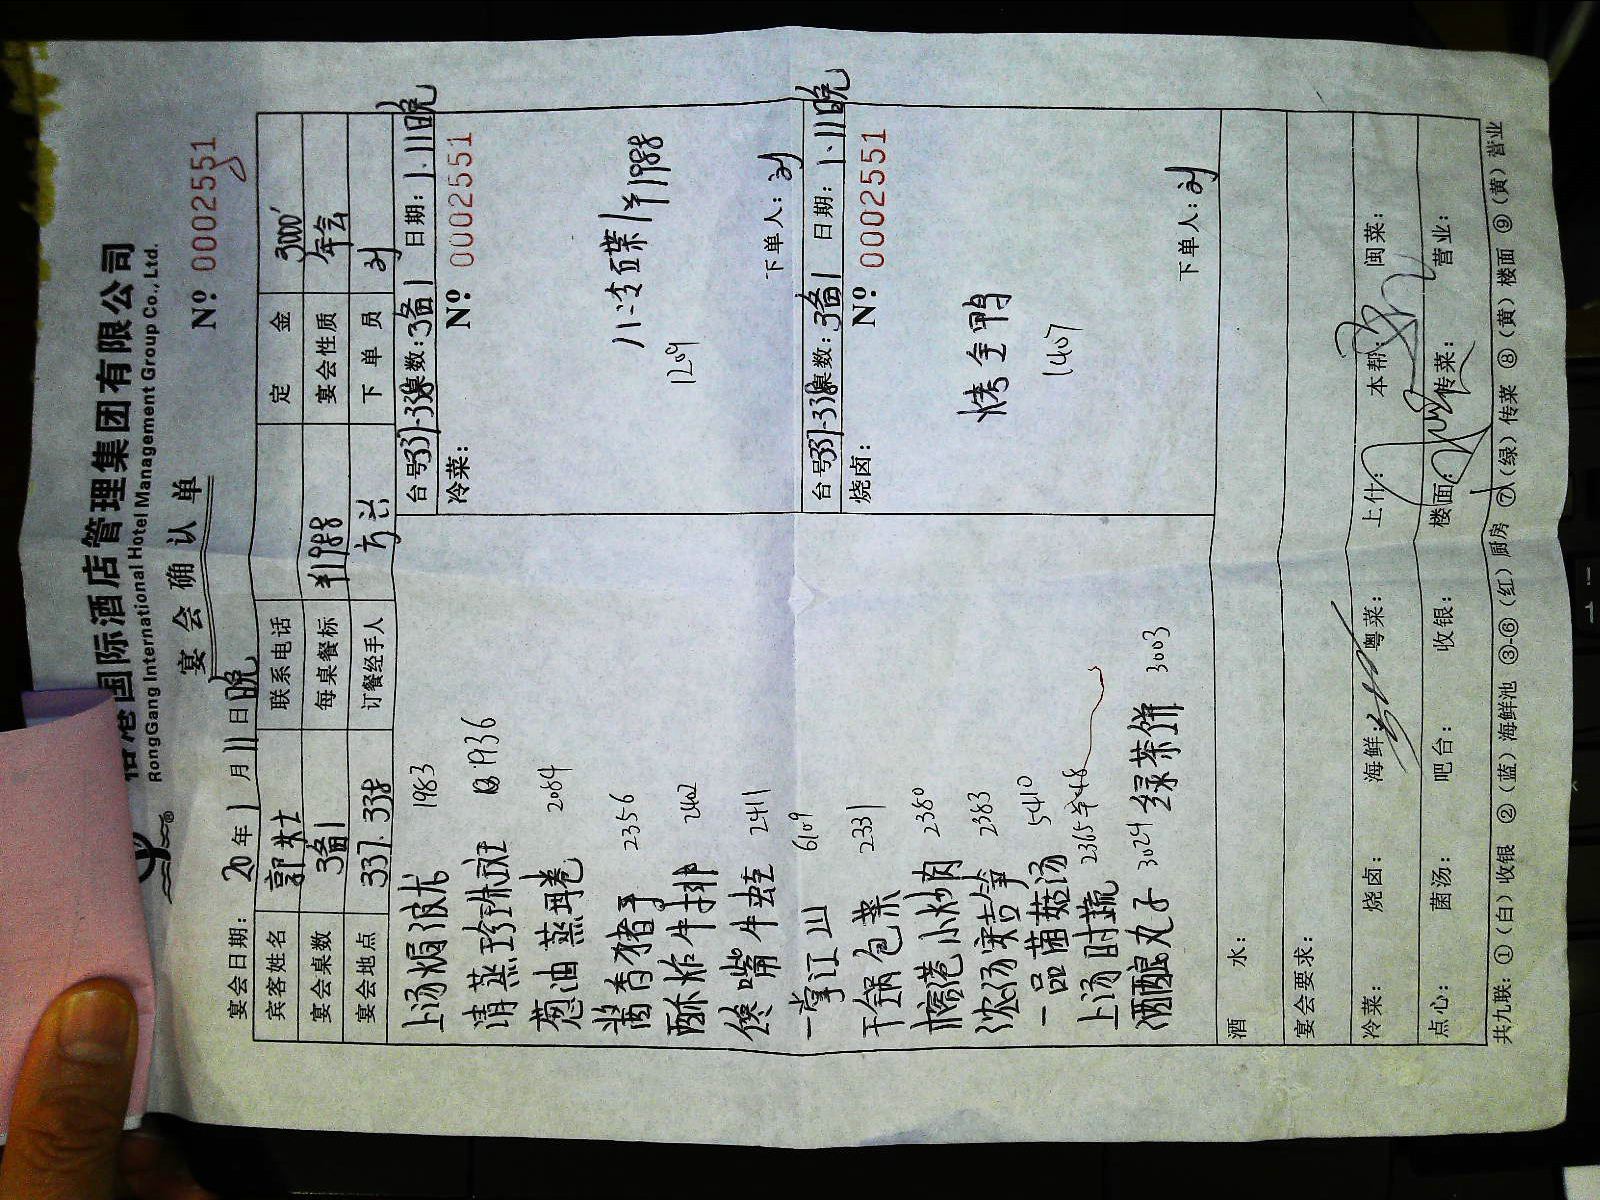 港国际酒店管理集团有限公司
RongGang International Hotel Management Group Co., Ltd.
®
宴会确认单
宴会日期: 20年1月11日晚
Nº 0002551
宾客姓名 郭 联系电话 定金 3000
宴会桌数 3备1 每桌餐标 ¥1988 宴会性质 年会
宴会地点 337.338 订餐经手人 方兴 下单员 刘
上汤焗波龙 1983
清蒸珍珠斑 1936
葱油蒸 2084
酱香猪手 2356
酥炸牛排 2402
馋嘴牛蛙 2411
一掌江山 6109
干锅包菜 2331
榕港小炒肉 2380
浓汤寒苦笋 2383
一品菌菇汤 5410
上汤时蔬 2365
酒酿丸子 3024 绿茶饼 3003
台号337-338桌数:3备1 日期:1.11晚
冷菜: Nº 0002551
八冷碟 ¥1988
1209
下单人:刘
台号337-338桌数:3备1 日期:1.11晚
烧卤: Nº 0002551
烤全鸭
1407
下单人:刘
酒水:
宴会要求:
冷菜: 烧卤: 海鲜: 粤菜: 上什: 本帮: 闽菜:
点心: 菌汤: 吧台: 收银: 楼面: 传菜: 营业:
共九联:①(白)收银 ②(蓝)海鲜池 ③-⑥(红)厨房 ⑦(绿)传菜 ⑧(黄)楼面 ⑨(黄)营业